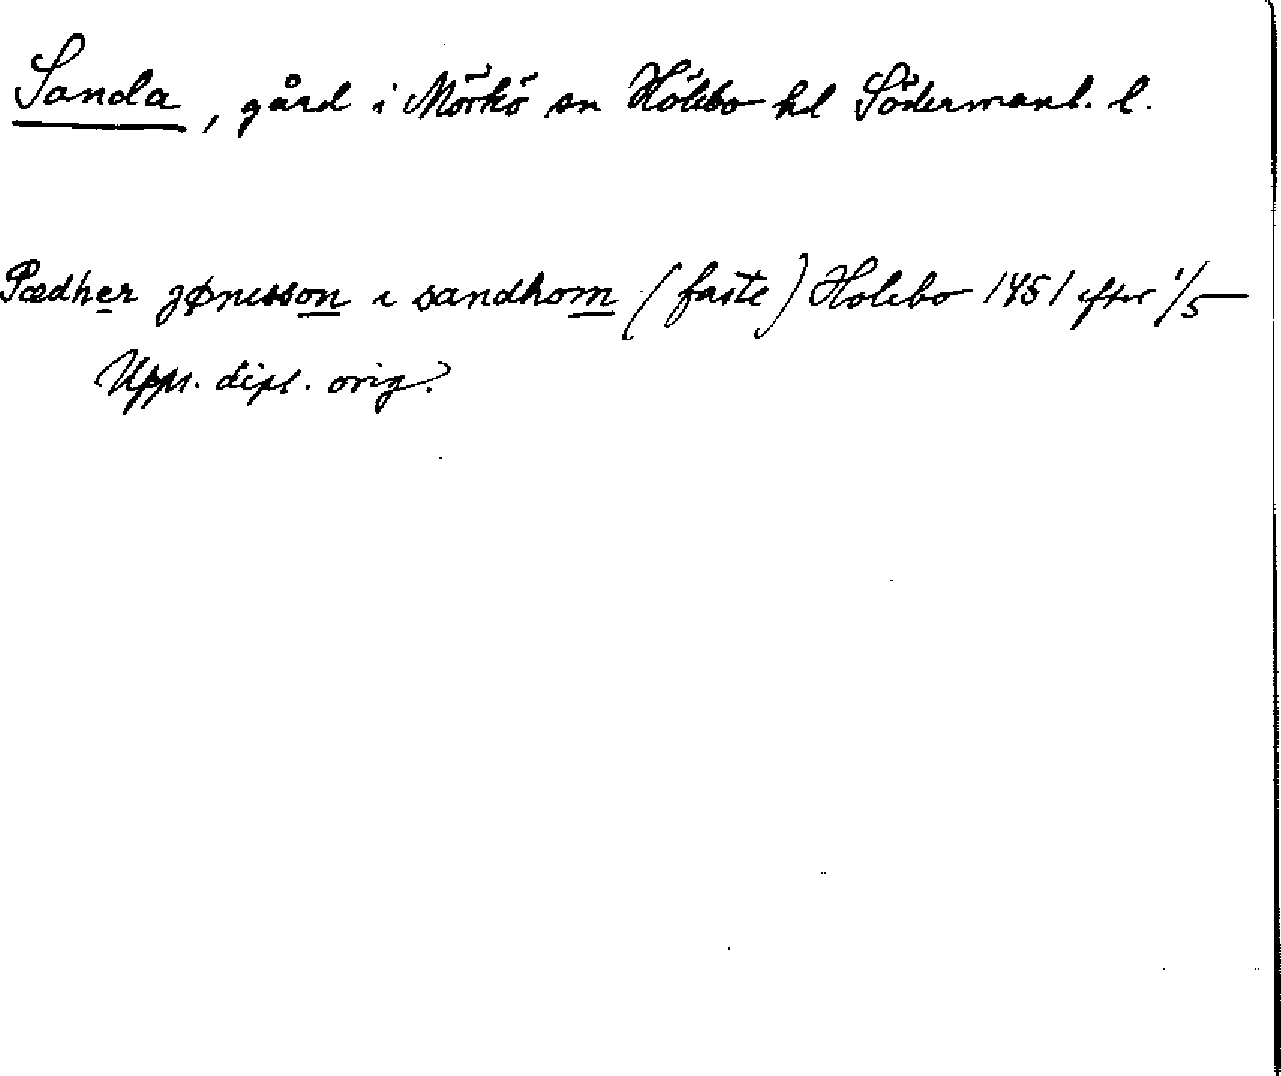 Sanda, gård i Mörkö sn Hölebo hd Södermanl. l.
Pædher jønisson i sandhom (faste) Holebo 1451 efter 1/5
Upps. dipl. orig.